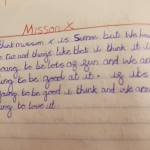 Misson x
that misson x is Summ but we have
to Tae and things like that i think it is
going to be lots of fun and we are
going to be good at it. if its
going to be good i think and we are
going to love it